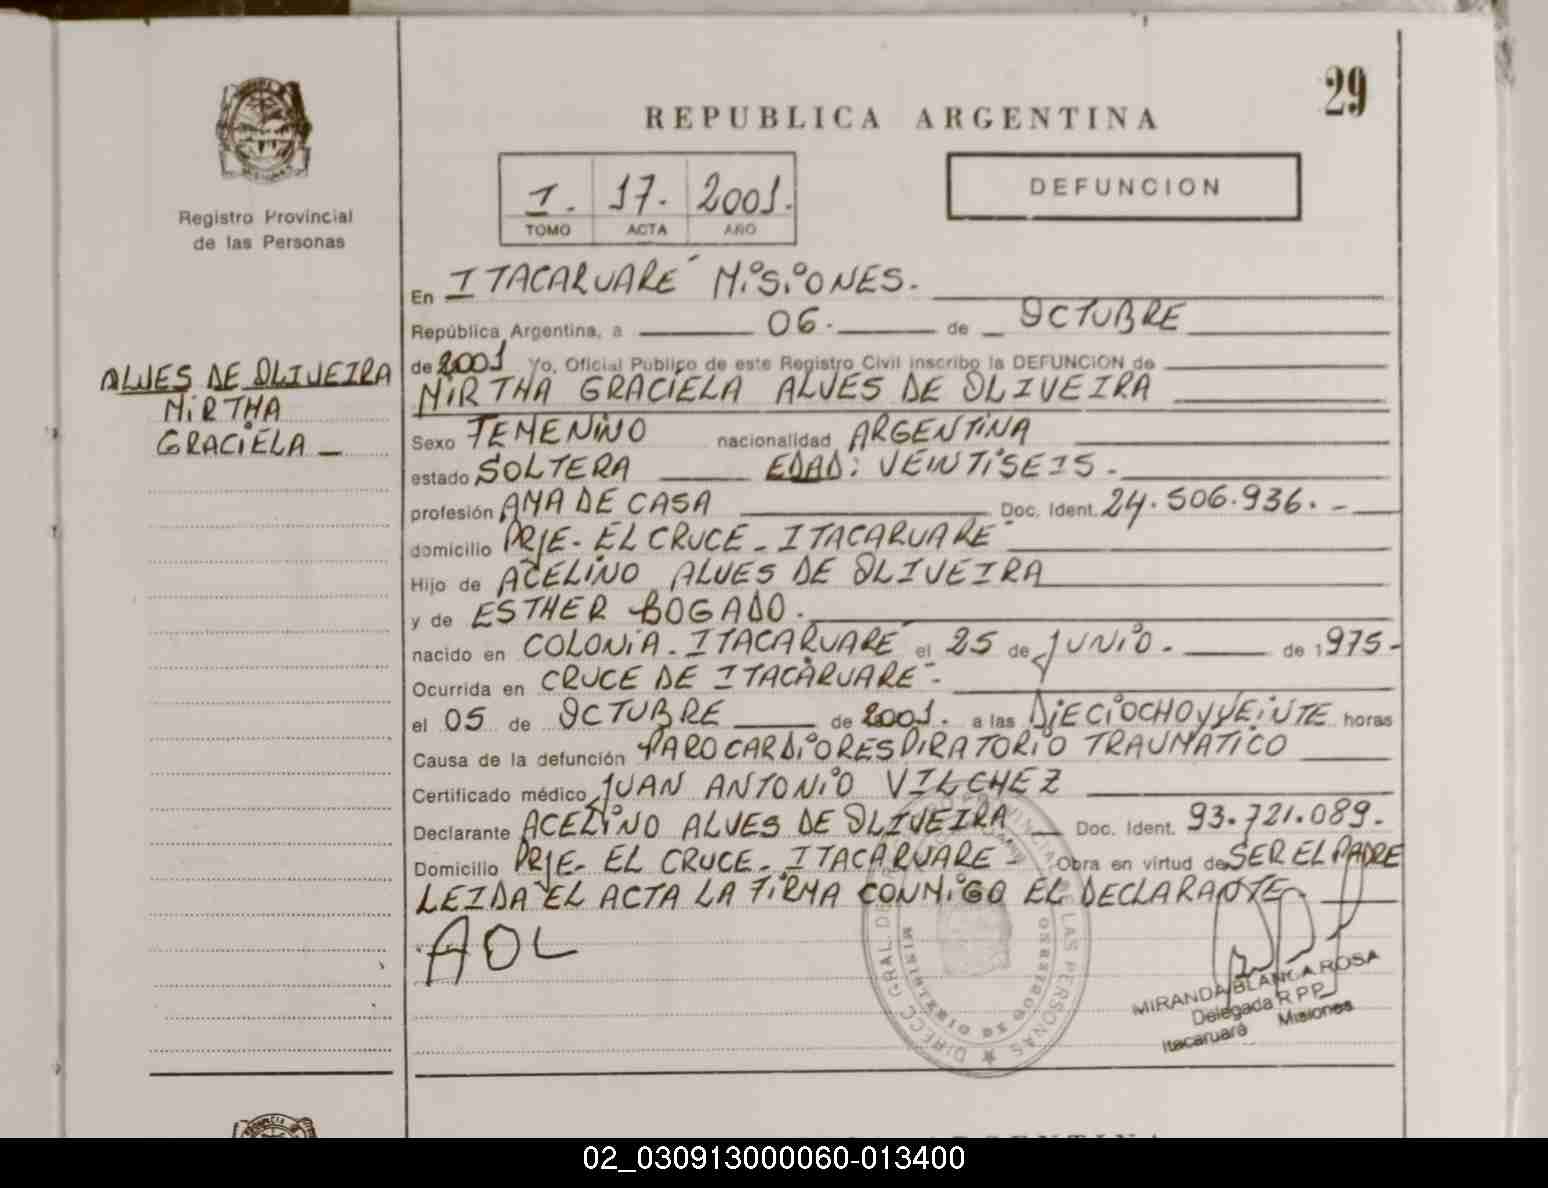 29
REPUBLICA ARGENTINA
I. 17. 2001.
TOMO ACTA AÑO
DEFUNCION
Registro Provincial
de las Personas
ALVES DE OLIVEIRA
MIRTHA
GRACIELA _
En ITACARUARÉ MISIONES.
República Argentina, a 06. de OCTUBRE
de 2001 Yo, Oficial Público de este Registro Civil inscribo la DEFUNCION de
MIRTHA GRACIELA ALVES DE OLIVEIRA
Sexo FEMENINO nacionalidad ARGENTINA
estado SOLTERA EDAD: VEINTISEIS.
profesión AMA DE CASA Doc. Ident. 24.506.936.-
domicilio PRJE- EL CRUCE- ITACARUARE
Hijo de ACELINO ALVES DE OLIVEIRA
y de ESTHER BOGADO.
nacido en COLONIA. ITACARUARE el 25 de JUNIO. de 1975-
Ocurrida en CRUCE DE ITACARUARE-
el 05 de OCTUBRE de 2001. a las DIECIOCHO y VEINTE horas
Causa de la defunción PARO CARDIORESPIRATORIO TRAUMATICO
Certificado médico JUAN ANTONIO VILCHEZ
Declarante ACELINO ALVES DE OLIVEIRA Doc. Ident. 93.721.089.
Domicilio PRJE- EL CRUCE- ITACARUARE- Obra en virtud de SER EL PADRE
LEIDA EL ACTA LA FIRMA CONMIGO EL DECLARANTE
AOL
MIRANDA BLANCA ROSA
Delegada R P P
Itacaruaré Misiones
02_030913000060-013400